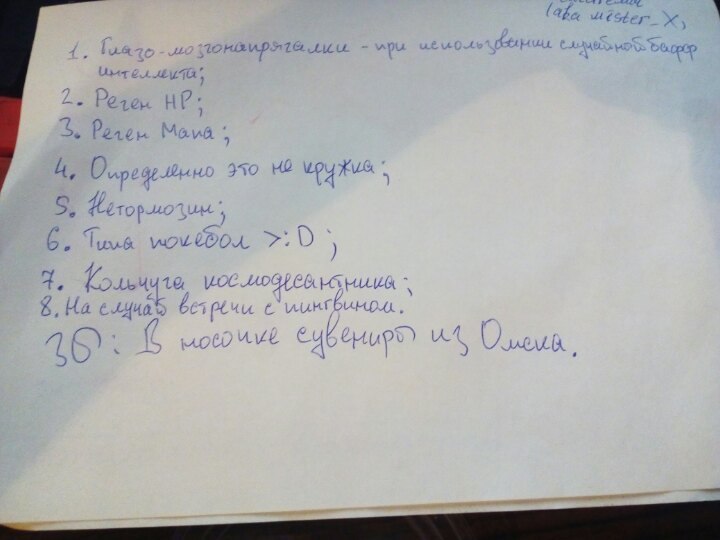 (aka mister-X,
1. Глазо-мозгонапрягалки - при использвании случайной бафф
интеллекта;
2. Реген HP;
3. Реген Мана;
4. Определенно это не кружка;
5. Нетормозин;
6. Типа покебол >:D ;
7. Кольчуга космодесантника;
8. На случай встречи с пингвином.
ЗЫ: В носочке сувениры из Омска.